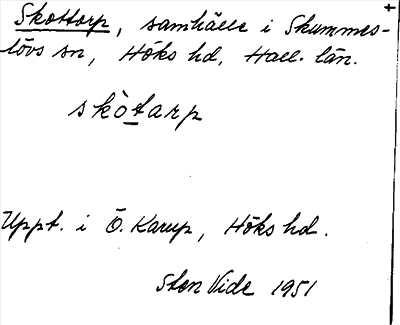 Skottorp, samhälle i Skummes-
lövs sn, Höks hd, Hall. län.
skòtarp
Uppt. i Ö. Karup, Höks hd.
Sten Vide 1951